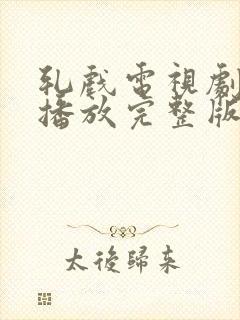 乳戲電視劇
播放完整版
太後歸來